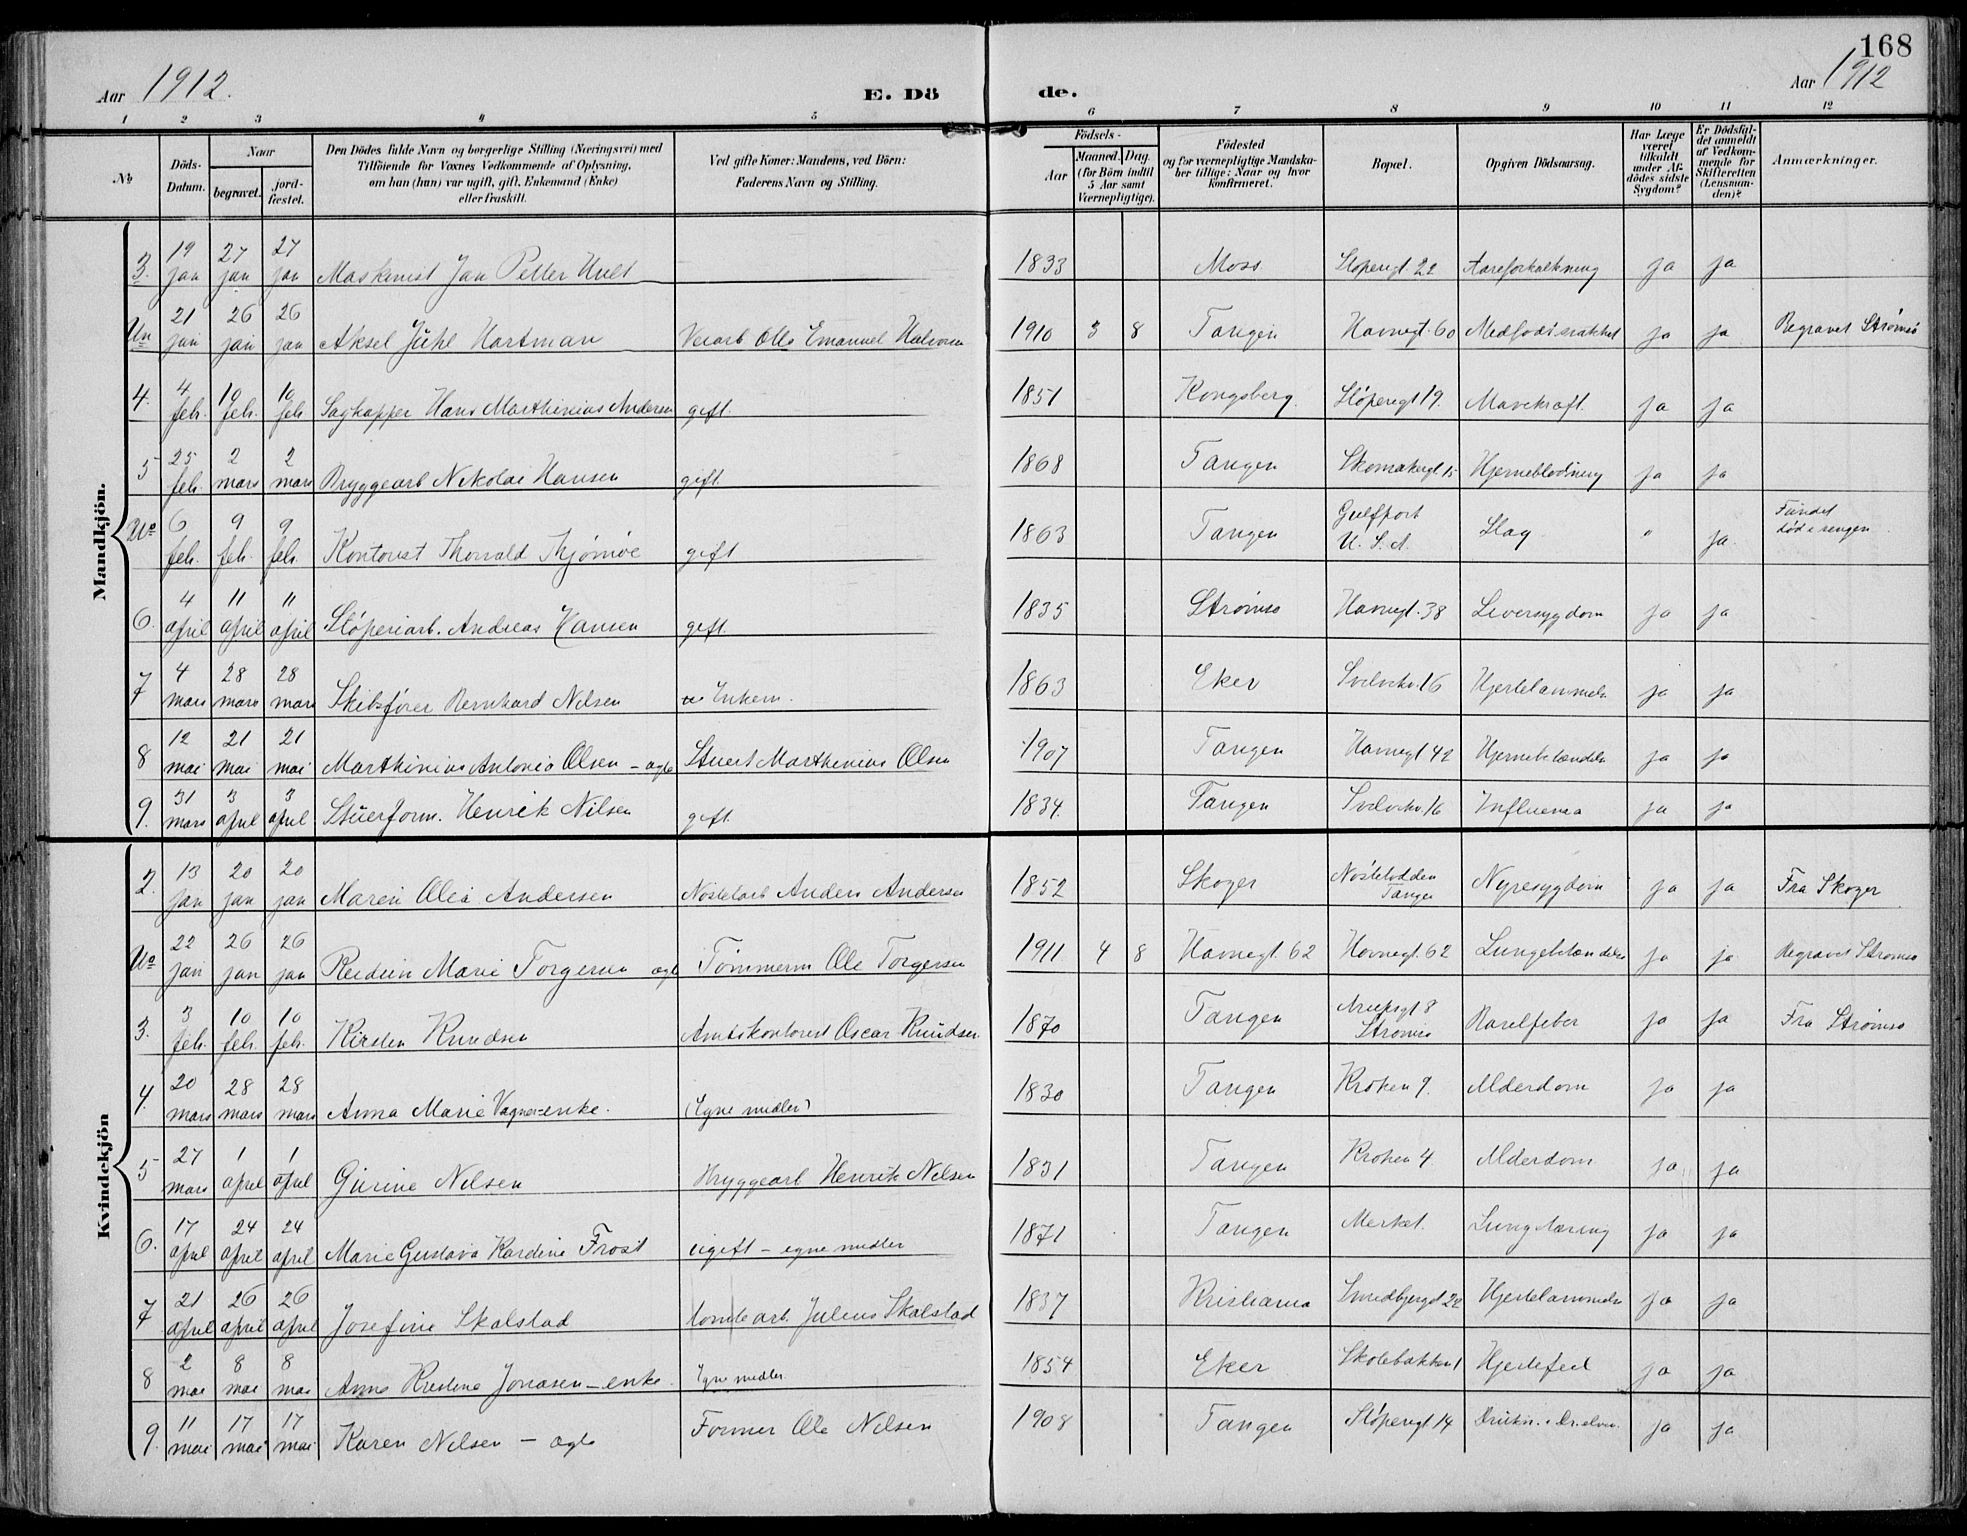 168
Aar 1912.
E. Dö de.
Aar 1912
1 2 3 4 5 6 7 8 9 10 11 12
No
Döds-Datum.
Naar
begravet.
jord-fæstet.
Den Dödes fulde Navn og borgerlige Stilling (Næringsvei) med
Tilföiende for Voxnes Vedkommende af Oplysning,
om han (hun) var ugift, gift, Enkemand (Enke)
eller fraskilt.
Ved gifte Koner: Mandens, ved Börn:
Faderens Navn og Stilling.
Födsels-
Aar
Maaned. Dag.
(for Börn indtil
5 Aar samt
Værnepligtige).
Födested
og for værnepligtige Mandska-
ber tillige: Naar og hvor
konfirmeret.
Bopæl.
Opgiven Dödsaarsag.
Har Læge
været
tilkaldt
under Af-
dödes sidste
Sygdom?
Er Dödsfal-
det anmeldt
af Vedkom-
mende for
Skifteretten
(Lensman-
den)?
Anmærkninger.
Mandkjön.
3. 19 jan 27 jan 27 jan Maskinist Jan Petter Hvit 1833 Moss Støperigt 22 Aareforkalkning ja ja
Un 21 jan 26 jan 26 jan Aksel Juhl Hartman Verarb Ole Emanuel Halvorsen 1910 3 8 Tangen Havnegt. 60 Medfødt svakhet ja ja Begravet Strømsø
4. 4 feb. 10 feb. 10 feb Sagkapper Hans Marthinius Andersen gift. 1851 Kongsberg. Støperigt 19. Mavekræft. ja ja
5 25 feb. 2 mars 2 mars Bryggearb Nikolai Hansen gift. 1868 Tangen Skomakergt. 15 Hjerneblødning ja ja
Uo 6 feb. 9 feb. 9 feb. Kontorist Thorvald Tjømøe gift 1863 Tangen Gulfport U. S. A. Slag " ja. Fundet død i sengen
6. 4 april 11 april 11 april Støperiarb. Andreas Hansen gift. 1835 Strømsø Havnegt. 38 Leversygdom ja ja
7 4 mars 28 mars 28 mars Skibsfører Bernhard Nilsen Enkem. 1863 Eker Svelvikv. 16 Hjertelammelse ja ja
8 12 mai 21 mai 21 mai Marthinius Antonio Olsen – agte Stuert Marthinius Olsen 1907 Tangen Havnegt 42 Hjernebetændelse ja ja
9. 31 mars 3 april 3 april Stuerform. Henrik Nilsen gift. 1834. Tangen Svelvikv. 16 Influensa ja ja
Kvindekjön
2. 13 jan 20 jan 20 jan Maren Olea Andersen Nøstelarb Anders Andersen 1852 Skoger Nøstelodden Tangen Nyresygdom ja ja Fra Skoger
Uo 22 jan 26 jan 26 jan Reidun Marie Torgersen agte Tømmerm Ole Torgersen 1911 4 8 Havnegt. 62 Havnegt. 62 Lungebetændelse ja ja Begravet Strømsø
3. 3 feb. 10 feb. 10 feb. Kirsten Knudsen Amtskontorist Oscar Knudsen 1870 Tangen Strømsø Barselfeber ja ja Fra Strømsø
4. 20 mars 28 mars 28 mars Anna Marie Vagner=enke. (Egne midler) 1830 Tangen Kroken 9. Alderdom ja ja
5 27 mars 1 april 1 april Gurine Nilsen Bryggearb Henrik Nilsen 1831 Tangen Kroken 4. Alderdom ja ja
6. 17 april 24 april 24 april Marie Gustava Kardine Frost ugift – egne midler 1871 Tangen Merket. Lungetæring ja ja
7 21 april 26 april 26 april Josefine Skalstad tomtearb. Julius Skalstad 1837 Kristiania Smedbjergt 22 Hjertelammelse ja ja
8 2 mai 8 mai 8 mai Anna Kristine Jonasen – enke. Egne midler. 1854 Eker Skolebakken 1 Hjertefeil ja ja
9. 11 mai 17 mai 17 mai Karen Nilsen – agte Former Ole Nilsen 1908 Tangen Støperigt 14 Drukn. i Dr.elven. ja ja